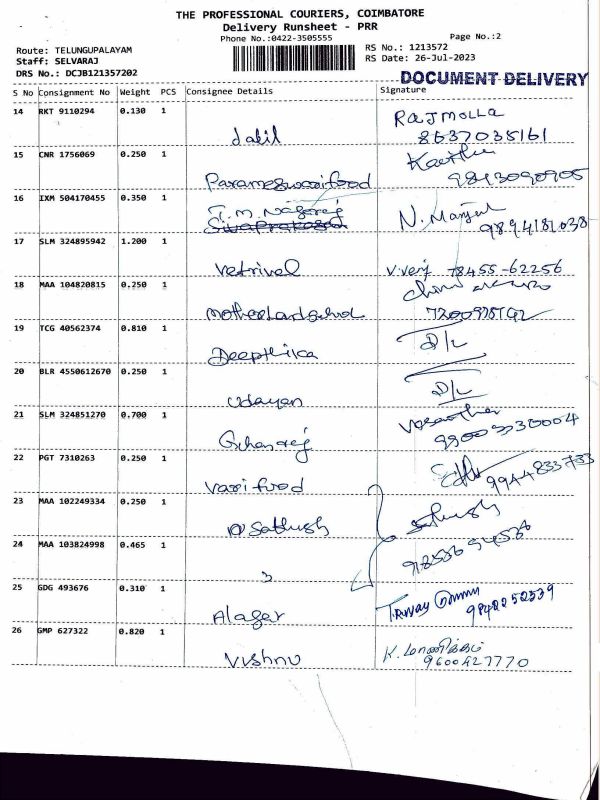 THE PROFESSIONAL COURIERS, COIMBATORE
Delivery Runsheet - PRR
Phone No.:0422-3505555
Page No.:2
Route: TELUNGUPALAYAM
RS No.: 1213572
Staff: SELVARAJ
RS Date: 26-Jul-2023
DRS No.: DCJB121357202
DOCUMENT DELIVERY
S No Consignment No Weight PCS Consignee Details Signature
14 RKT 9110294 0.130 1
Jalil
RAJMOLLA
8637035161
15 CNR 1756069 0.250 1
Parameswari food
9843090905
16 IXM 504170455 0.350 1
T.M. Nagaraj
N. Manjul
9894181038
17 SLM 324895942 1.200 1
Vetrivel
V.verj 78455-62256
18 MAA 104820815 0.250 1
19 TCG 40562374 0.810 1
Deepthika
D/L
20 BLR 4550612670 0.250 1
Udayan
D/L
21 SLM 324851270 0.700 1
Vasantha
22 PGT 7310263 0.250 1
Vari food
9944833733
23 MAA 102249334 0.250 1
Sathish
Sathish
24 MAA 103824998 0.465 1
25 GDG 493676 0.310 1
Alagar
9842252539
26 GMP 627322 0.820 1
Vishnu
K. மாணிக்கம்
9600427770